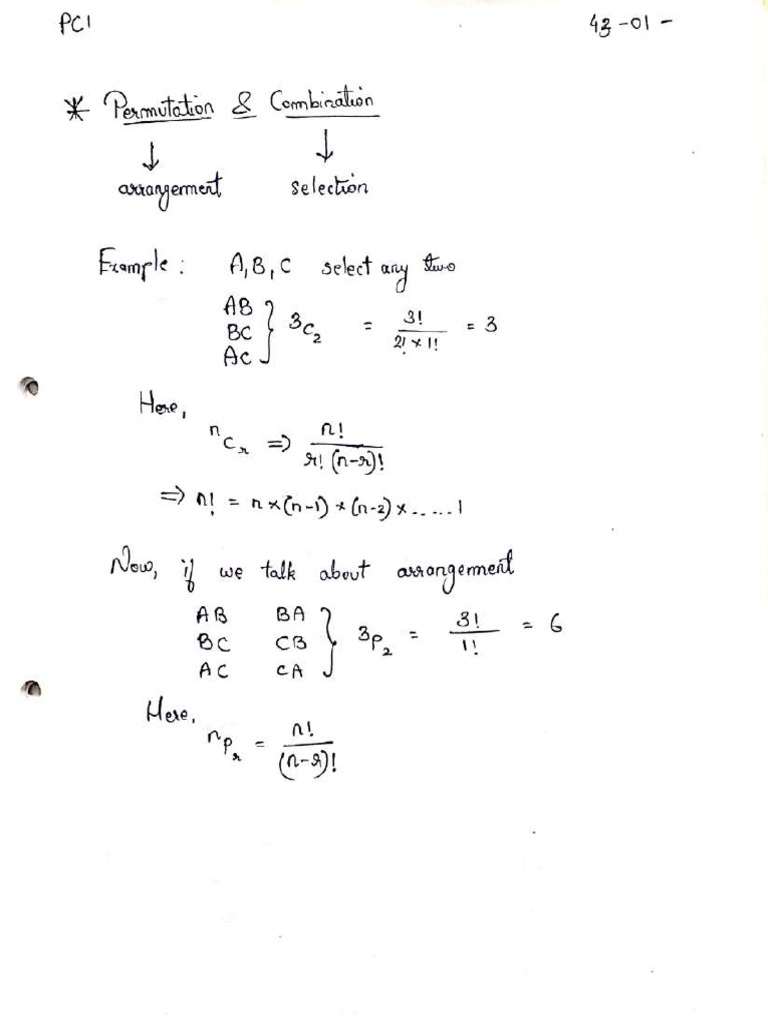 PC1 43-01-
* Permutation & Combination
↓ ↓
arrangement selection
Example : A, B, C select any two
AB
BC } ³C₂ = 3!/(2! × 1!) = 3
AC
Here,
ⁿCᵣ ⇒ n!/(r! (n-r)!)
⇒ n! = n×(n-1)×(n-2)×.....1
Now, if we talk about arrangement
AB BA
BC CB } ³P₂ = 3!/1! = 6
AC CA
Here,
ⁿPᵣ = n!/(n-r)!